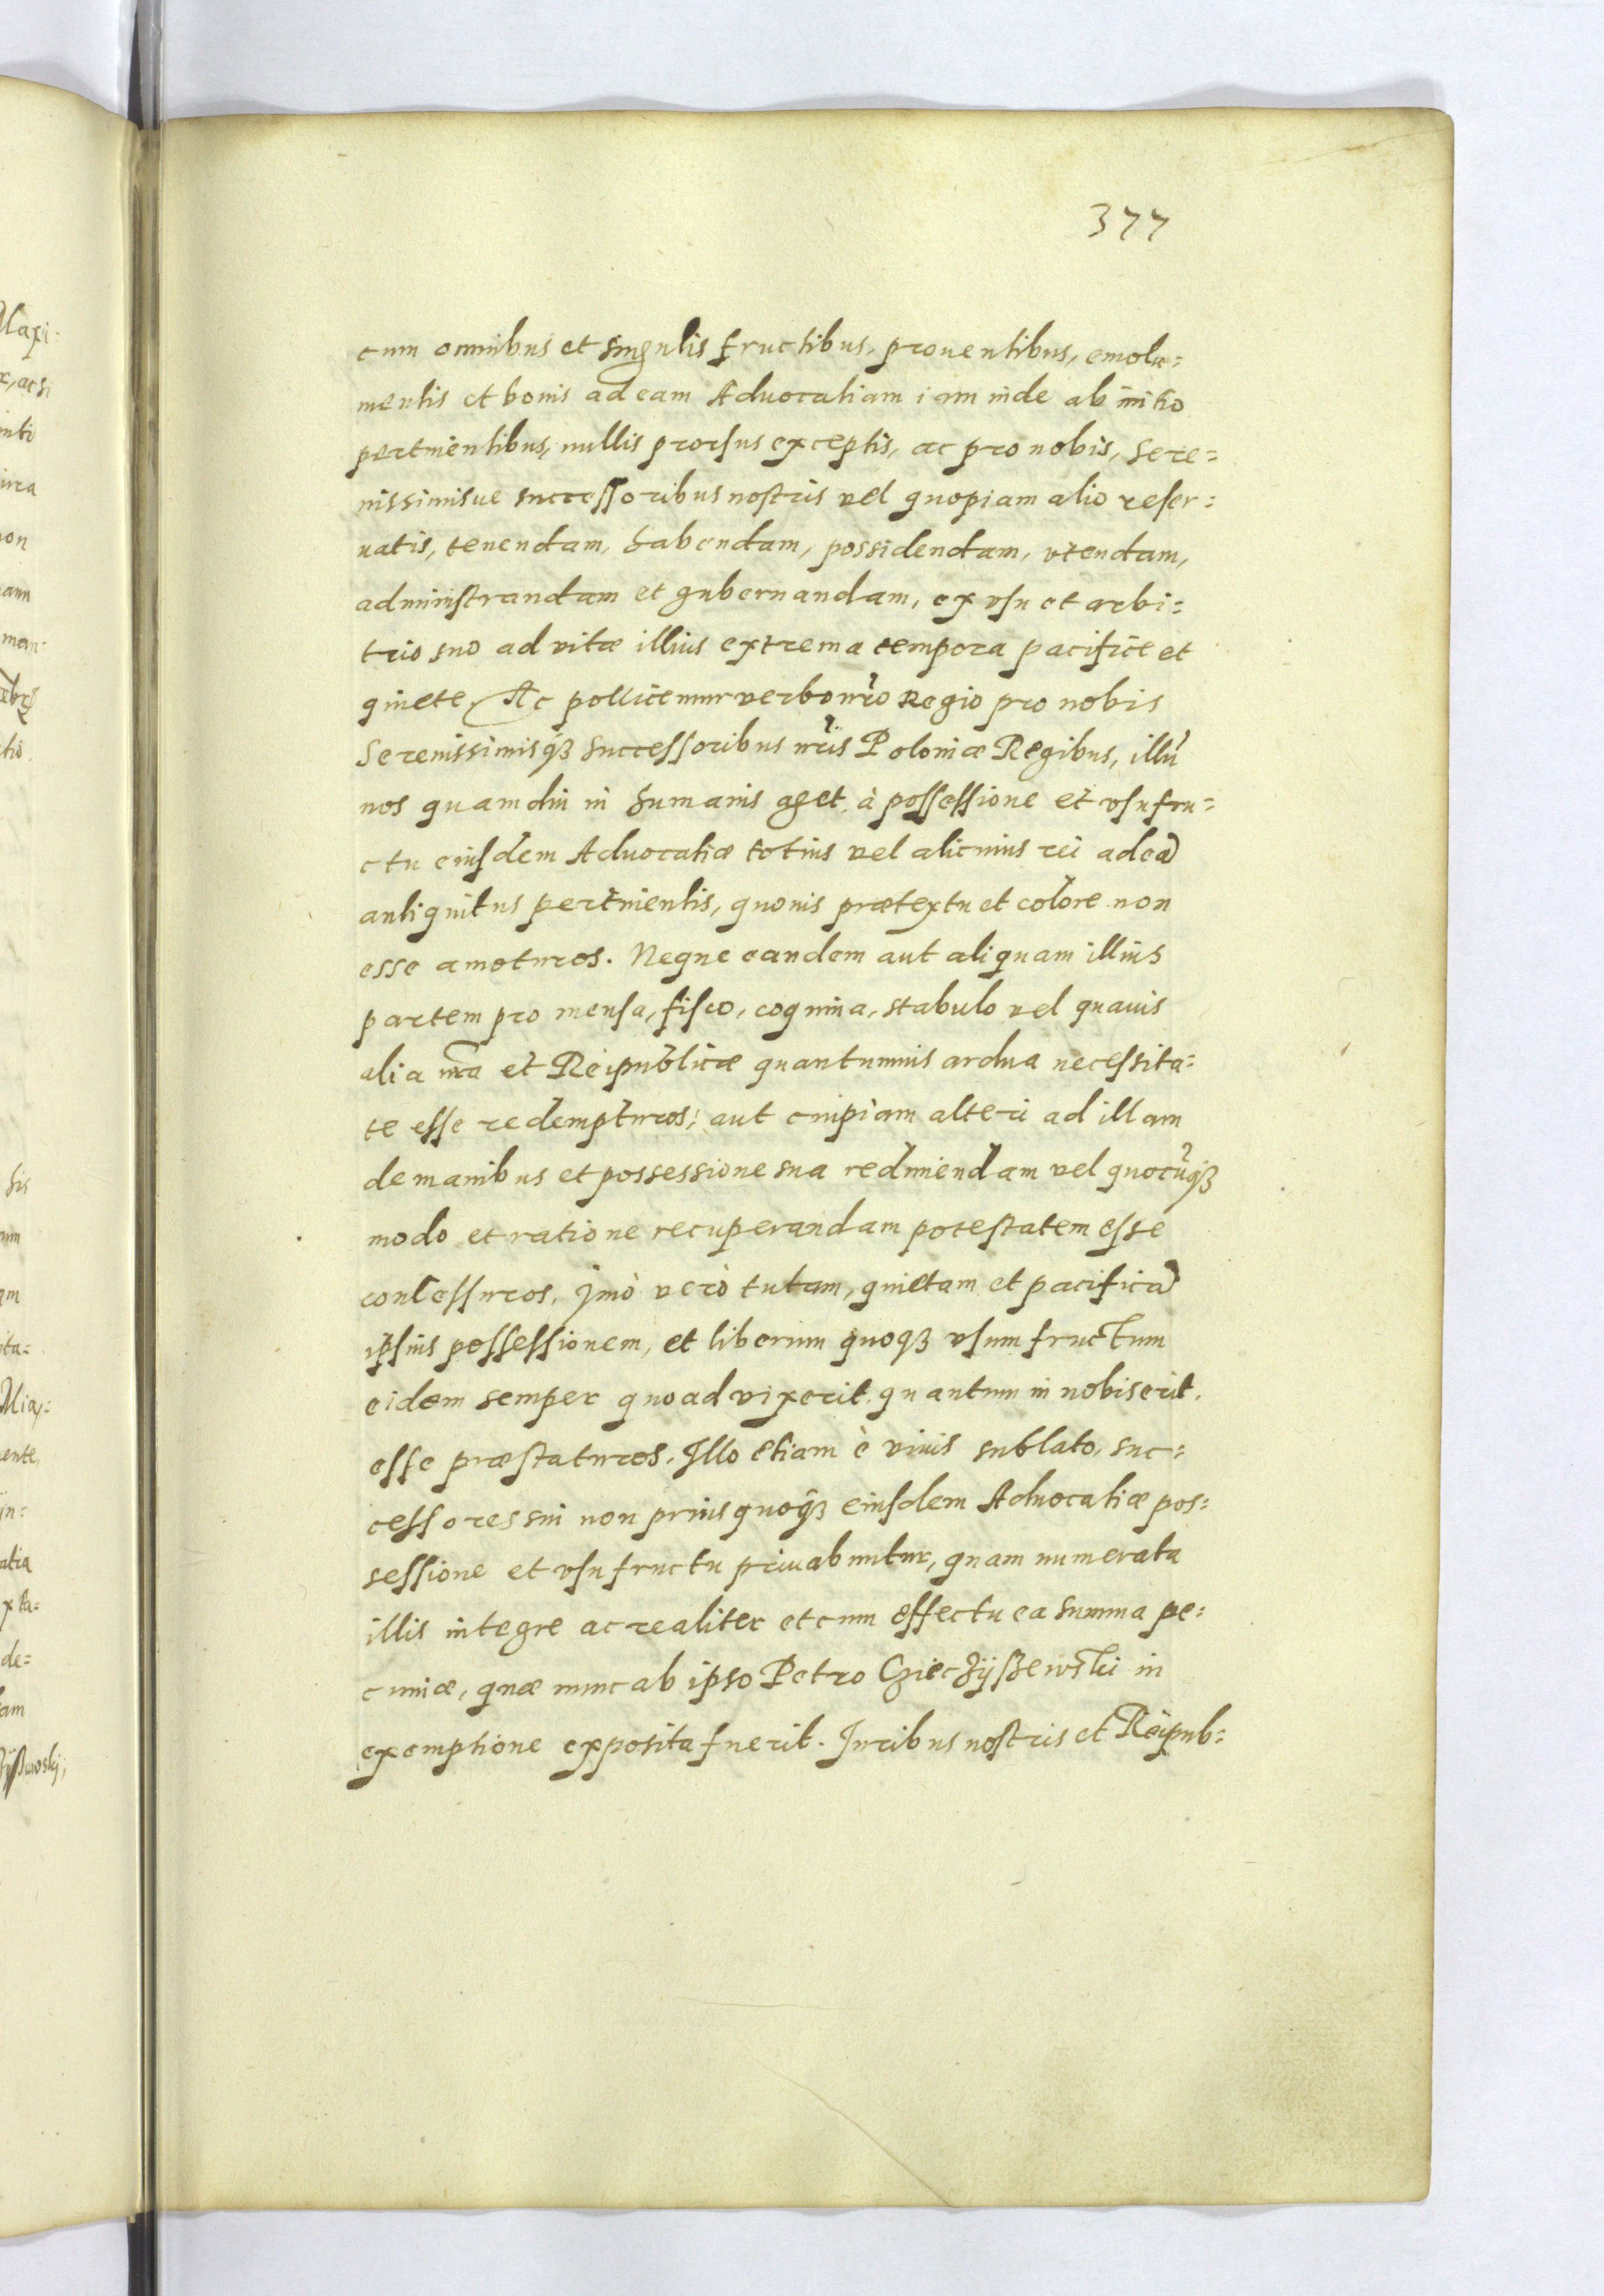 377
cum omnibus et singulis fructibus, prouentibus, emolu=
mentis et bonis ad eam Aduocatiam iam inde ab initio
pertinentibus, nullis prorsus exceptis, ac pro nobis, Sere=
nissimisue successoribus nostris vel quopiam alio reser=
uatis, tenendam, habendam, possidendam, vtendam,
administrandam et gubernandam, ex vsu et arbi=
trio suo ad vitæ illius extrema tempora pacifice et
quiete, Ac pollicemur verbo nrõ Regio pro nobis
Serenissimisq3 Successoribus nrĩs Poloniæ Regibus, illũ
nos quamdiu in humanis aget, à possessione et vsufru=
ctu eiusdem Aduocatiæ totius vel alicuius rei ad eã
antiquitus pertinentis, quouis prætextu et colore non
esse amoturos. Neque eandem aut aliquam illius
partem pro mensa, fisco, coquina, stabulo vel quauis
alia nrã et Reipublicæ quantumuis ardua necessita=
te esse redempturos, aut cuipiam alteri ad illam
de manibus et possessione sua redimendam vel quocũq3
modo et ratione recuperandam potestatem esse
concessuros. Jmò verò tutam, quietam et pacificã
ipsius possessionem, et liberum quoq3 vsum fructum
eidem semper quoad vixerit, quantum in nobis erit,
esse præstaturos. Illo etiam è viuis sublato, suc=
cessores sui non prius quoq3 eiusdem Aduocatiæ pos=
sessione et vsufructu priuabuntur, quam numerata
illis integre ac realiter et cum effectu ea summa pe=
cuniæ, quæ nunc ab ipso Petro Czieczÿszewski in
exemptione exposita fuerit. Juribus nostris et Reipub=